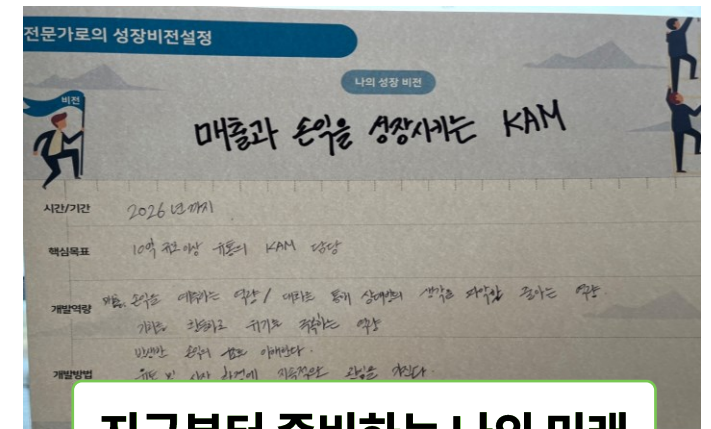 전문가로의 성장비전설정
나의 성장 비전
비전
매출과 손익을 성장시키는 KAM
시간/기간 2026년까지
핵심목표 10억 규모 이상 유통의 KAM 담당
개발역량 매출, 손익을 예측하는 역량 / 대화를 통해 상대방의 생각을 파악할 줄 아는 역량
기회를 창출하고 위기를 극복하는 역량
손익의 이해한다.
개발방법 유통 및 지속적으로 관심을 가진다.
지금부터 준비하는 나의 미래